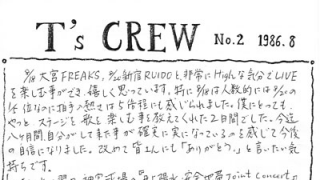 T's CREW No.2 1986.8
8/18 大宮FREAKS、8/22 新宿RUIDOと、非常にHighな気分でLIVE
を楽しむ事ができ、嬉しく思っています。特に8/18は人数的には8/22の
位なのに拍手、熱さは5倍程にも感じられました。僕にとっても、
やっとステージを歌を楽しむ事を教えてくれた2日間でした。今迄
八ヶ月間、自分がして来た事が確実に実になっているのを感じて今後
の自信になりました。改めて皆さんにも「ありがとう。」と言いたい気
持ちです。
Joint Concert